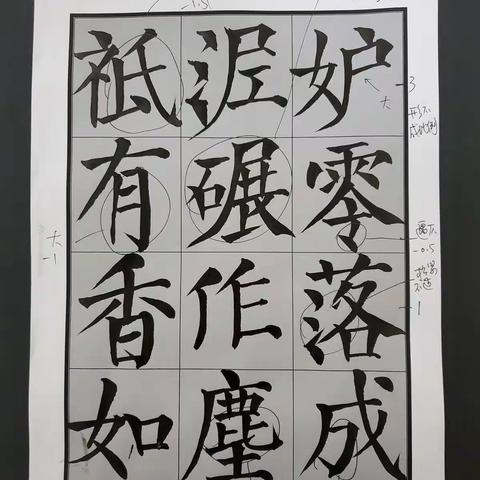 妒零落成
泥碾作塵
祇有香如
-1.5
-3
大
-0.5
-1
大
-1